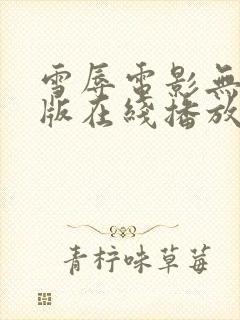 雪辱電影無
版在綫播放
青柠味草莓